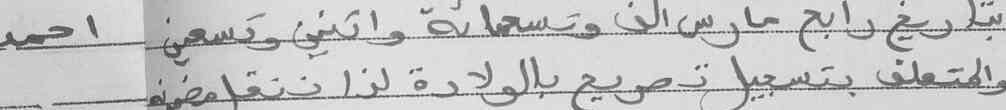 بتاريخ رابع مارس الف وتسعمائة واثنين وتسعين احمد
والمتعلق بتسجيل تصريح بالولادة لذا